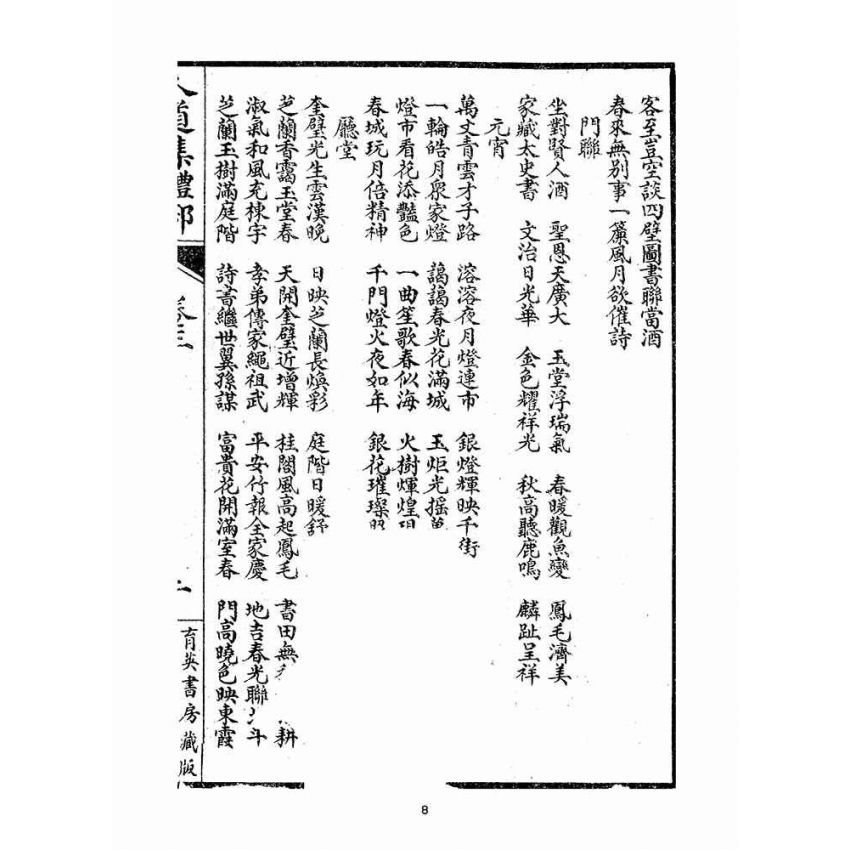 客至豈空談四壁圖書聯當酒
春來無別事一簾風月欲催詩
門聯
坐對賢人酒 聖恩天廣大 玉堂浮瑞氣 春暖觀魚變 鳳毛濟美
家藏太史書 文治日光華 金色耀祥光 秋高聽鹿鳴 麟趾呈祥
元宵
萬丈青雲才子路 溶溶夜月燈連市 銀燈輝映千街
一輪皓月衆家燈 藹藹春光花滿城 玉炬光搖
燈市看花添豔色 一曲笙歌春似海 火樹煇煌
春城玩月倍精神 千門燈火夜如年 銀花璀璨
廳堂
奎璧光生雲漢晚 日映芝蘭長煥彩 庭階日暖
芝蘭香靄玉堂春 天開奎璧近增輝 桂閣風高起鳳毛 書田無 耕
淑氣和風充棟宇 孝弟傳家繩祖武 平安竹報全家慶 地吉春光聯 斗
芝蘭玉樹滿庭階 詩書繼世翼孫謀 富貴花開滿室春 門高曉色映東霞
道集禮部 卷三
育英書房藏版
8